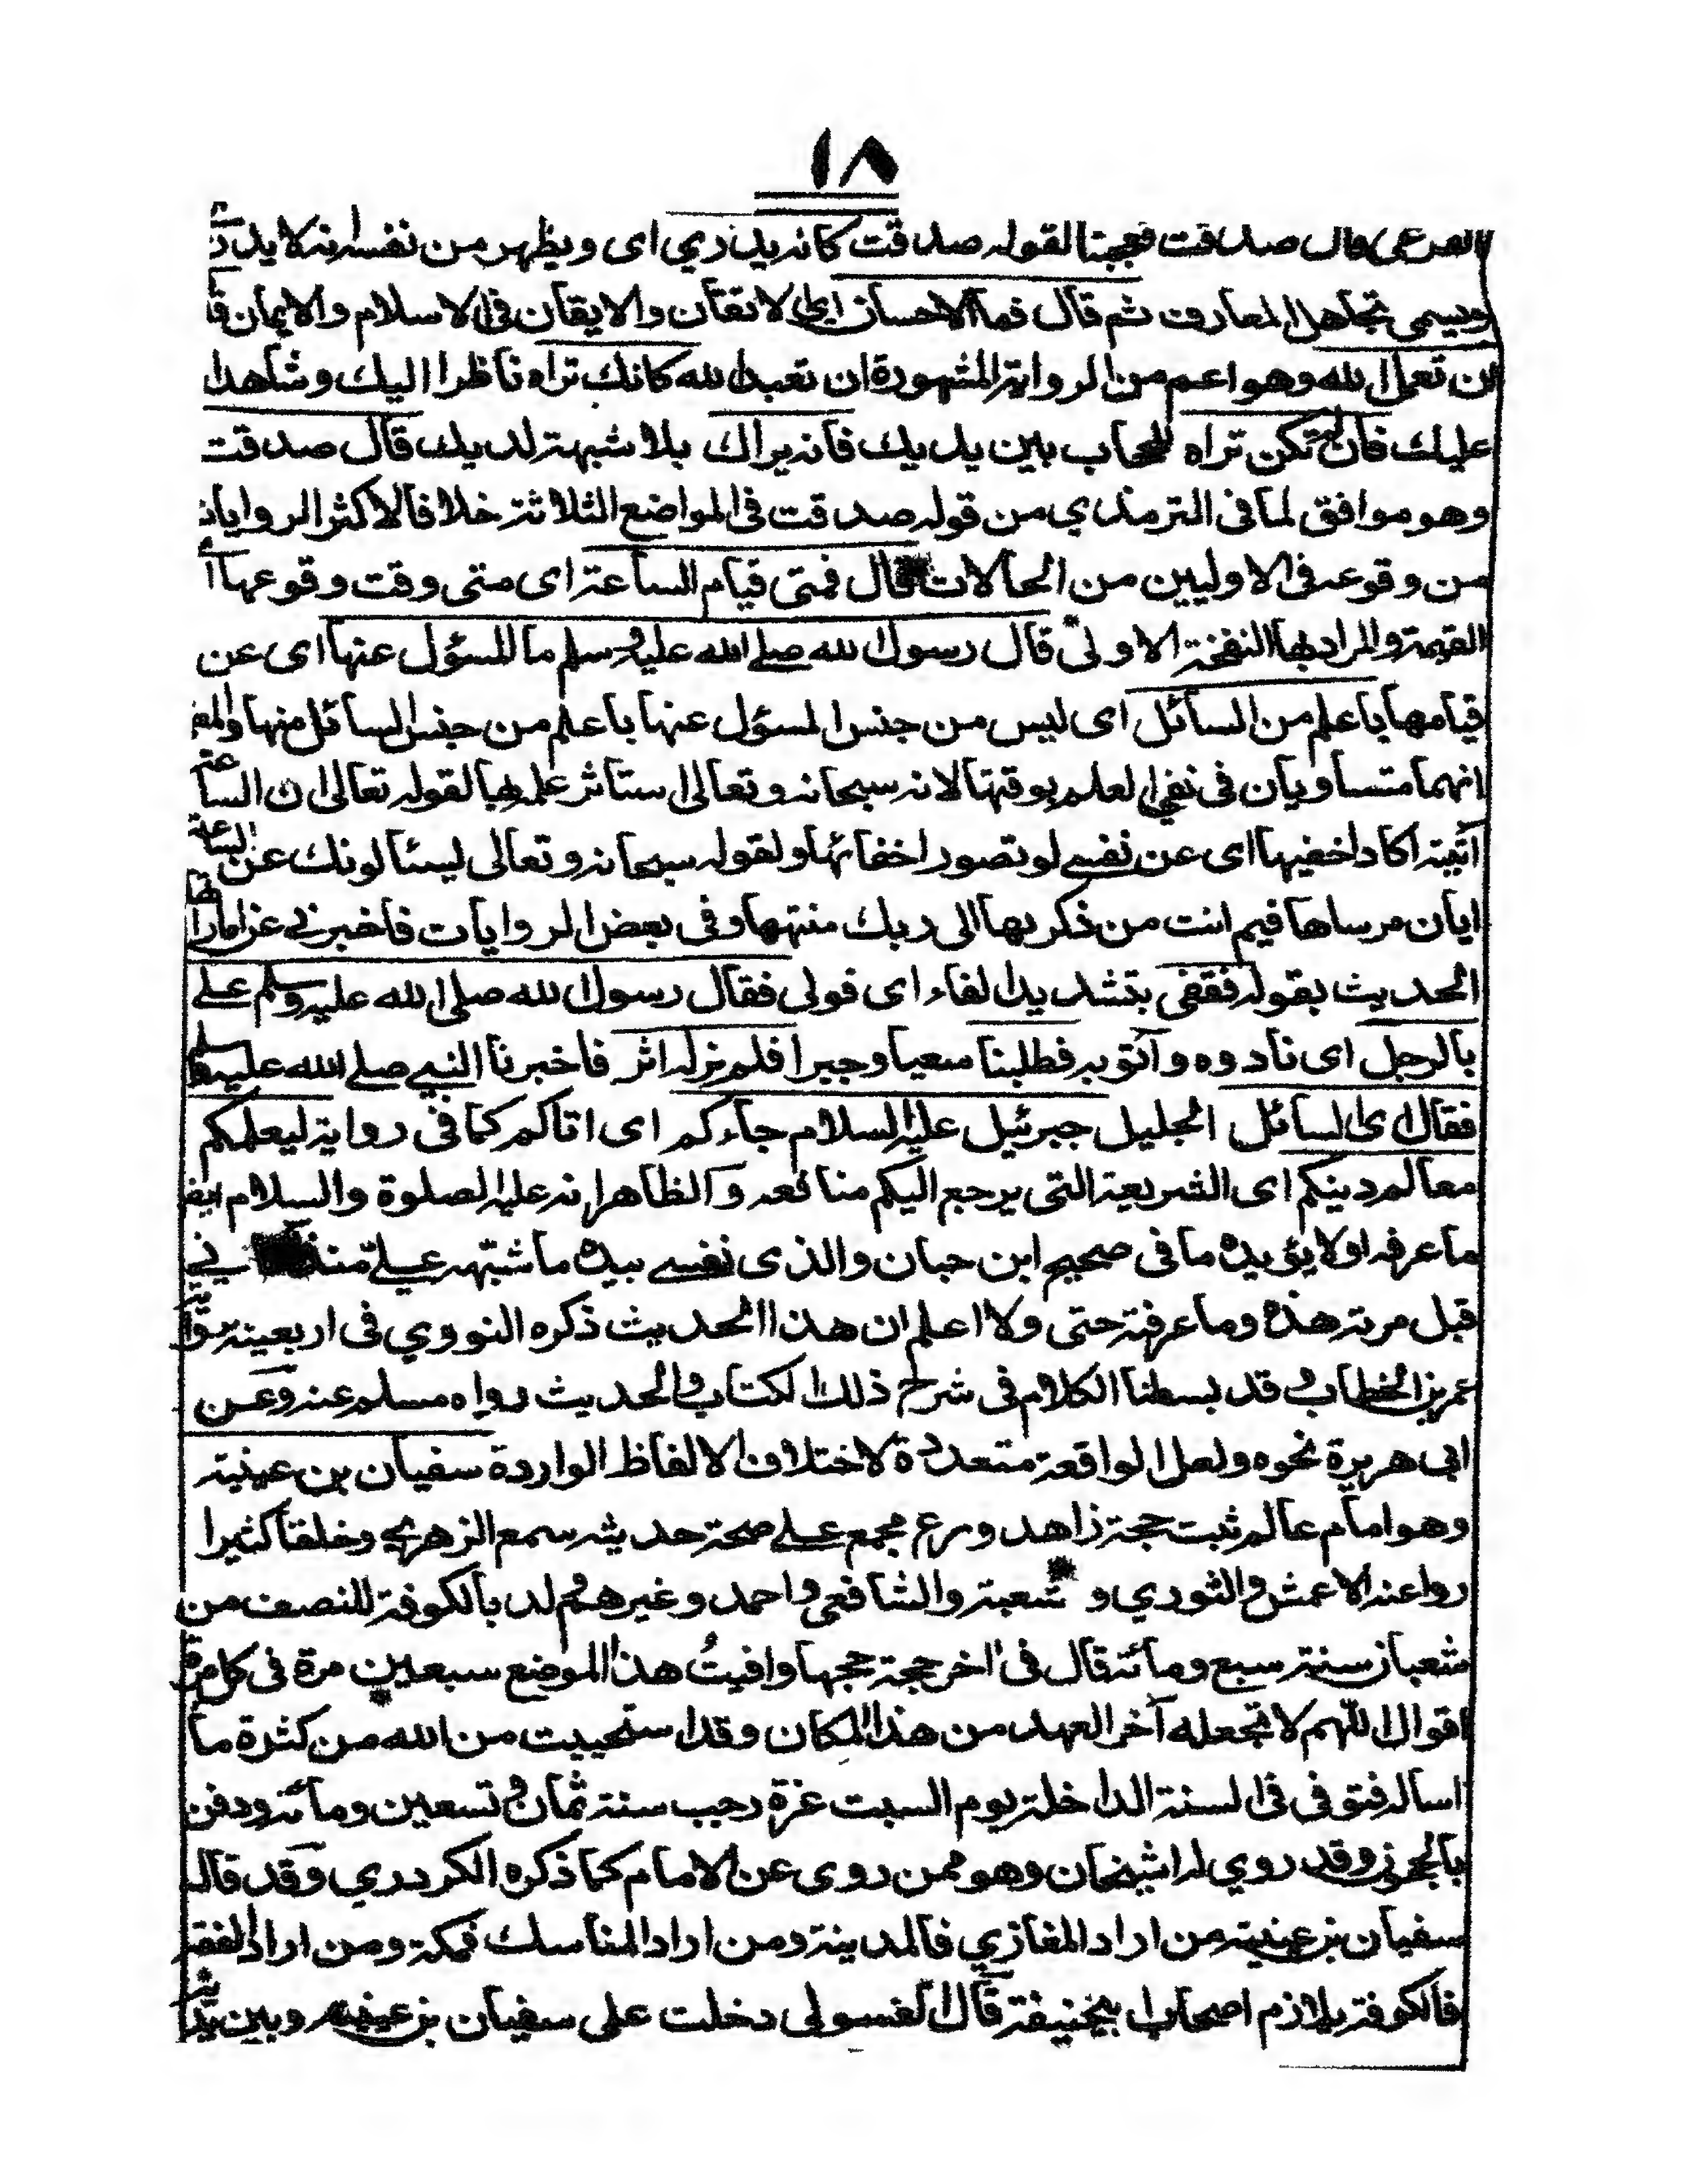 ١٨
قال صدقت فعجبنا لقوله صدقت كانه يدري اى ويظهر من نفسه انه لا يدرى
ويسمى تجاهل المعارف ثم قال فما الاحسان اى الاتقان والايقان فى الاسلام والايمان قا
ان تعمل لله وهو اعم من الرواية المشهورة ان تعبد الله كانك تراه ناظرا اليك وشاهدا
عليك فان لم تكن تراه للحجاب بين يديك فانه يراك بلا شبهة لديك قال صدقت
وهو موافق لما فى الترمذي من قوله صدقت فى المواضع الثلاثة خلافا لاكثر الروايات
من وقوعه فى الاوليين من الحالات قال فمتى قيام الساعة اى متى وقت وقوعها
القيمة والمراد بها النفخة الاولى قال رسول الله صلے الله عليه وسلم ما المسؤل عنها اى عن
قيامها باعلم من السائل اى ليس من جنس المسؤل عنها باعلم من جنس السائل منها والمع
انهما متساويان فى نفى العلم بوقتها لانه سبحانه وتعالى استاثر علمها لقوله تعالى ان الساعة
آتية اكاد اخفيها اى عن نفسے لو تصور اخفائها ولقوله سبحانه وتعالى يسئالونك عن الساعة
ايان مرساها فيم انت من ذكربها الى ربك منتهها وفى بعض الروايات فاخبرنى عن اماراتها
الحديث بقوله فقفى بتشديد الفاء اى فولى فقال رسول الله صلى الله عليه وسلم علے
بالرجل اى نادوه وآتو به فطلبنا سعيا وجبرا فلم نر له اثر فاخبرنا النبے صلے الله عليه وسلم
فقال اى السائل الجليل جبرئيل عليه السلام جاءكم اى اتاكم كما فى رواية ليعلمكم
معالم دينكم اى الشريعة التى يرجع اليكم منائعه والظاهر انه عليه الصلوة والسلام ايض
ما عرفه اولا يؤيده ما فى صحيح ابن حبان والذى نفسے بيده ما شبّه علےّ منذ
قبل مرته هذه وما عرفته حتى ولا اعلم ان هذا الحديث ذكره النووي فى اربعينه
عمر بن الخطاب وقد بسطنا الكلام فى شرح ذلك الكتاب والحديث رواه مسلم عنه وعن
ابى هريرة نحوه ولعل الواقعة متعددة لاختلاف الالفاظ الواردة سفيان بن عينية
وهو امام عالم ثبت حجة زاهد ورع مجمع علے صحة حديثه سمع الزهرى وخلقا كثيرا
روا عنه الاعمش والثوري و شعبة والشافعى واحمد وغيرهم ولد بالكوفة للنصف من
شعبان سنة سبع ومائة قال فى اخر حجة حجها وافيتُ هذا الموضع سبعين مرة فى كل مرة
اقول اللّهم لا تجعله آخر العهد من هذا المكان وقد استحييت من الله من كثرة ما
اساله فتوفى فى السنة الداخلة يوم السبت غرة رجب سنة ثمان وتسعين ومائة ودفن
بالحجون وقد روي له الشيخان وهو ممن روى عن الامام كما ذكره الكردري وقد قال
سفيان بن عينية من اراد المغازي فالمدينة ومن اراد المناسك فمكة ومن اراد الفقه
فالكوفة يلازم اصحاب ابيحنيفة قال الغسولى دخلت على سفيان بن عينية وبين يديه